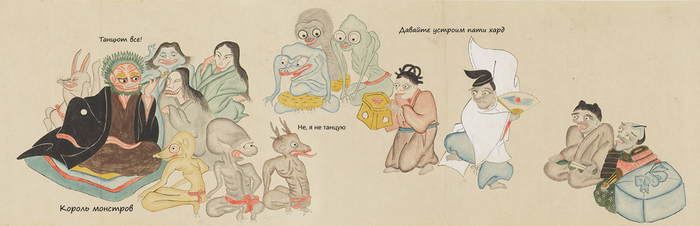 Танцуют все!
Давайте устроим пати хард
Не, я не танцую
Король монстров